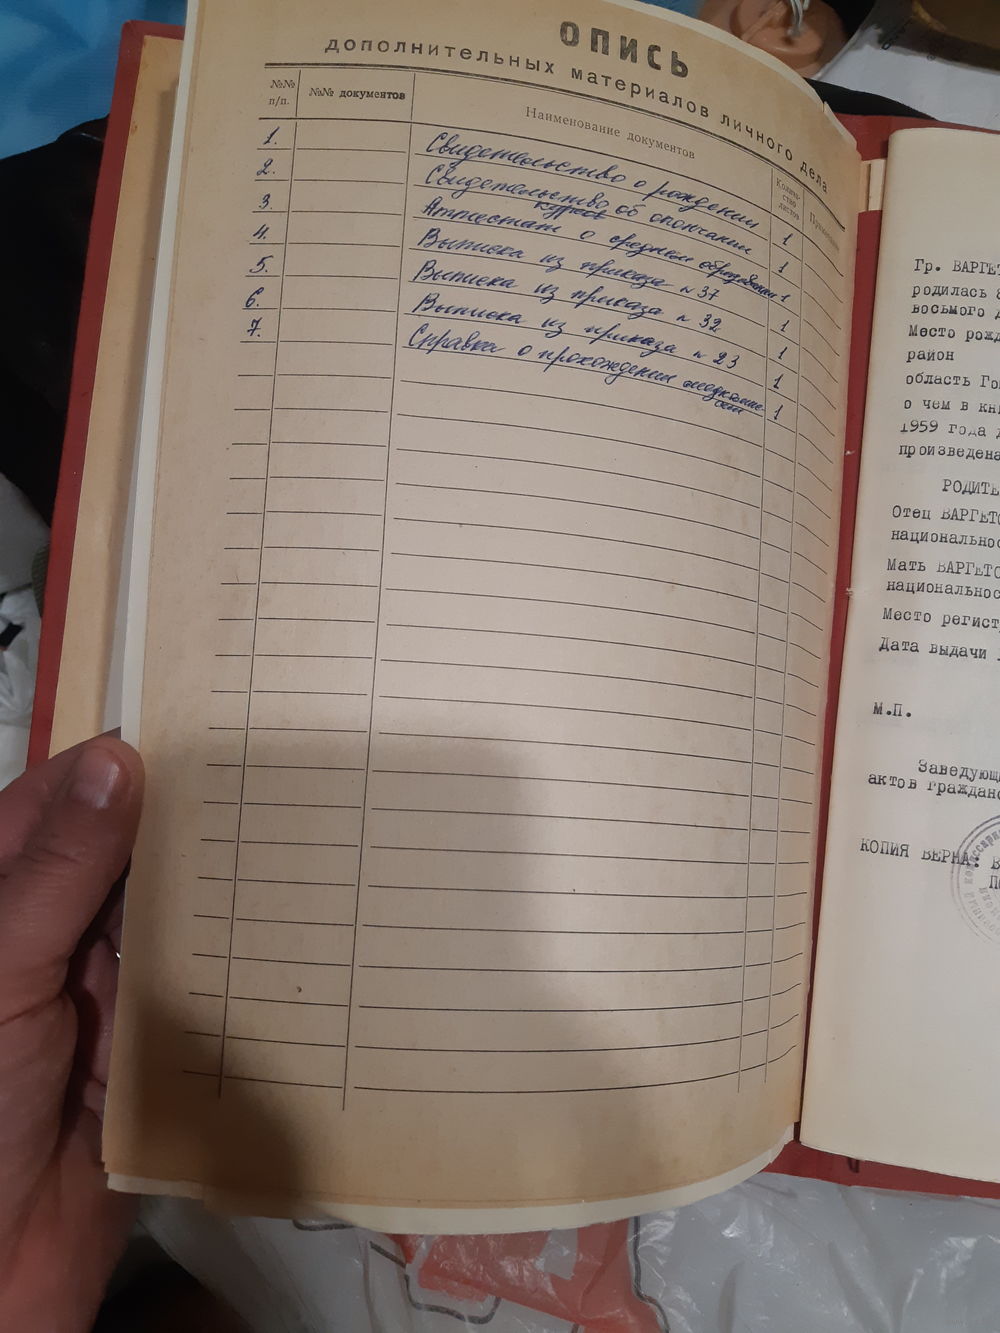 ОПИСЬ
дополнительных материалов личного дела
№№ п/п.
№№ документов
Наименование документов
Количе-
ство
листов
1. Свидетельство о рождении 1
2. Свидетельство об окончании
курсов 1
3. Аттестат о среднем образовании 1
4. Выписка из приказа № 37 1
5. Выписка из приказа № 32 1
6. Выписка из приказа № 23 1
7. Справка о прохождении медкомис-
сии 1
Гр. ВАРГЕТ
родилась
восьмого
Место рожд
район
область Го
о чем в кн
1959 года
произведена
РОДИТЕ
Отец ВАРГЕТО
национальнос
Мать ВАРГЕТО
национальнос
Место регист
Дата выдачи
М.П.
Заведующ
актов граждано
КОПИЯ ВЕРНА: